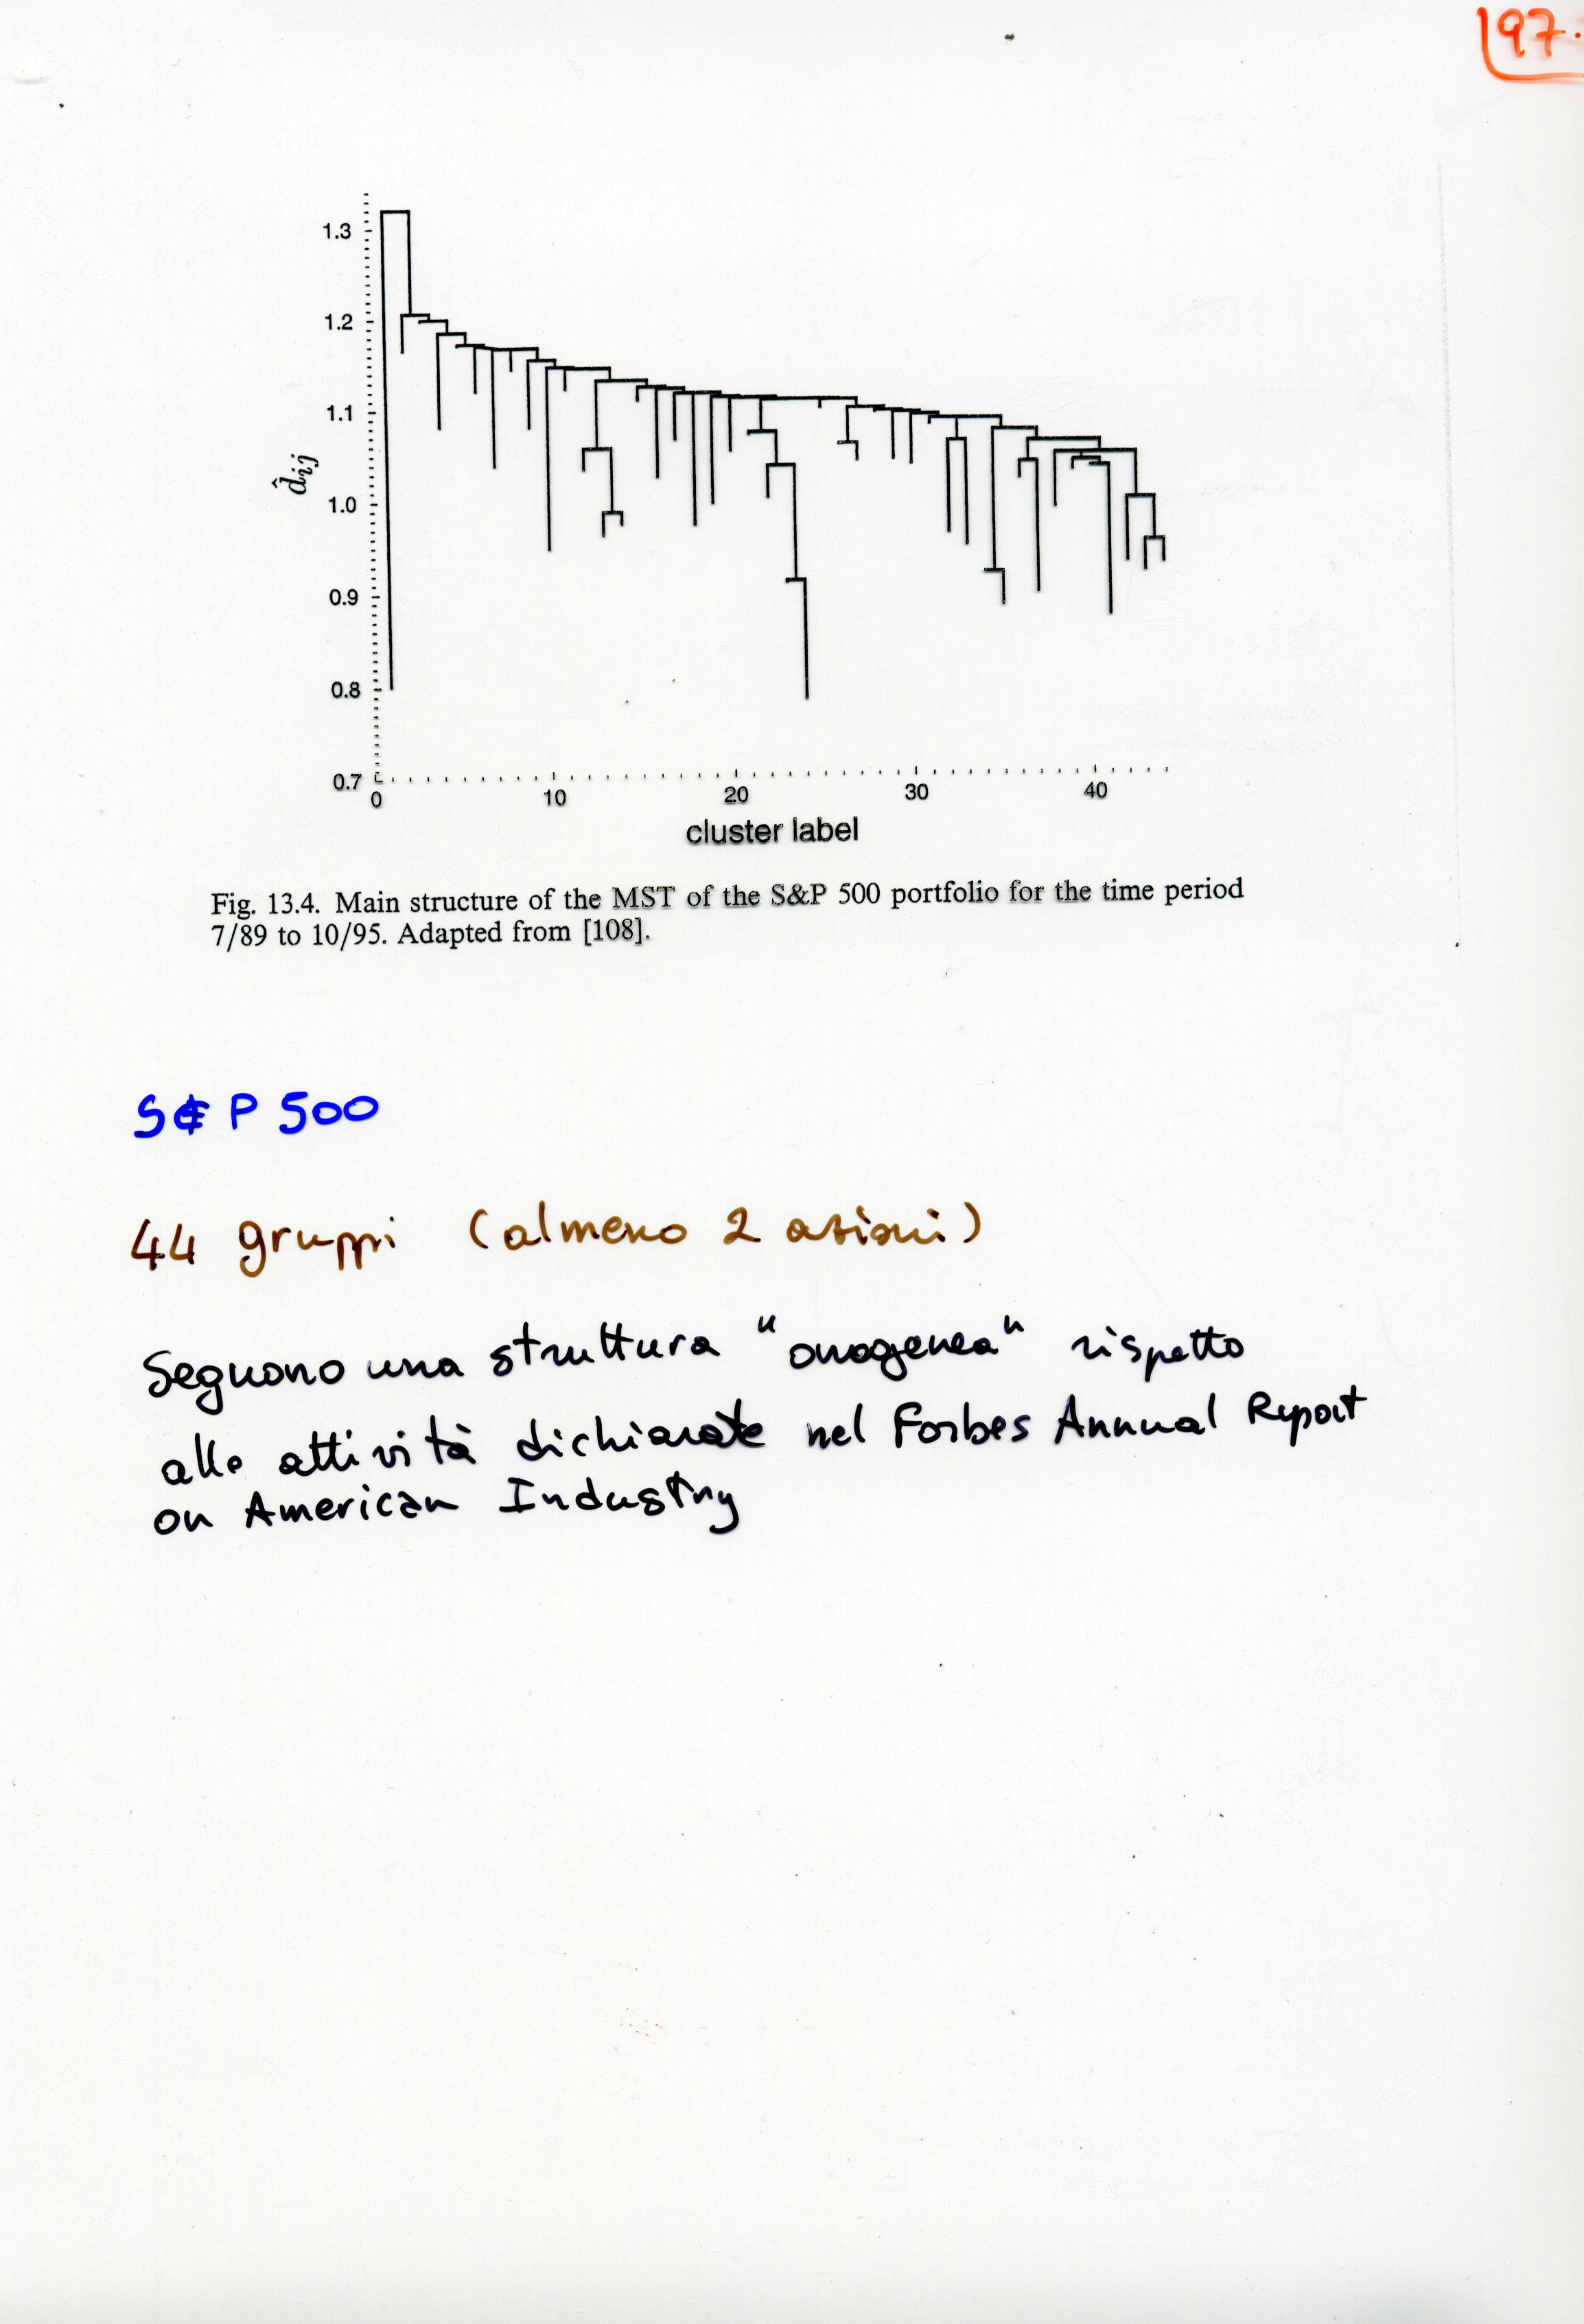 197.
1.3
1.2
1.1
1.0
0.9
0.8
0.7
d̂ij
0 10 20 30 40
cluster label
Fig. 13.4. Main structure of the MST of the S&P 500 portfolio for the time period
7/89 to 10/95. Adapted from [108].
S&P 500
44 gruppi (almeno 2 azioni)
Seguono una struttura "omogenea" rispetto
alle attività dichiarate nel Forbes Annual Report
on American Industry